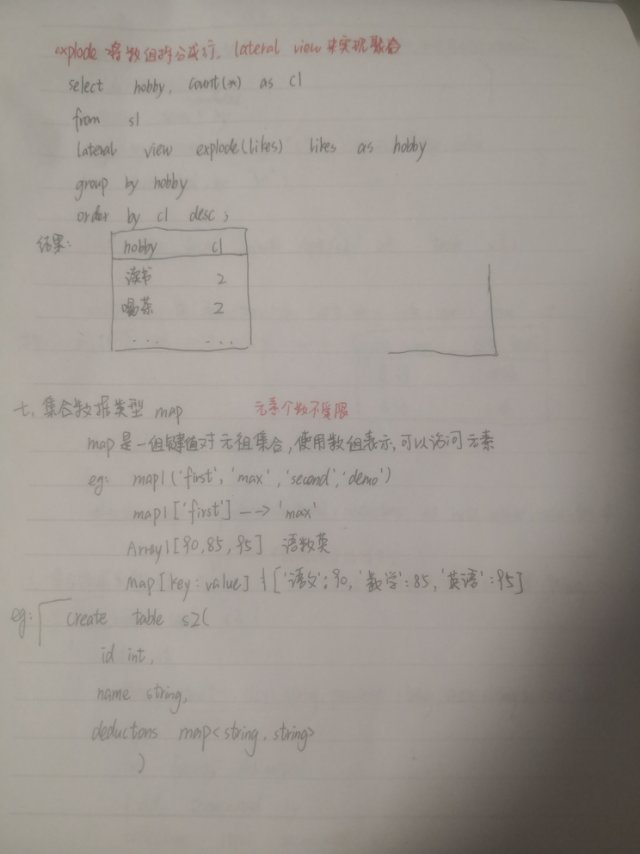 explode 将数组拆分成行, lateral view 来实现聚合
select hobby, count(*) as cl
from s1
lateral view explode(likes) likes as hobby
group by hobby
order by cl desc;
结果:
hobby cl
读书 2
喝茶 2
... ...
七、集合数据类型 map 元素个数不受限
map是一组键值对元祖集合,使用数组表示,可以访问元素
eg: map1('first', 'max', 'second', 'demo')
map1['first'] --> 'max'
Array1[90,85,95] 语数英
map[key:value] ['语文':90, '数学':85, '英语':95]
eg: create table s2(
id int,
name string,
deductons map<string, string>
)